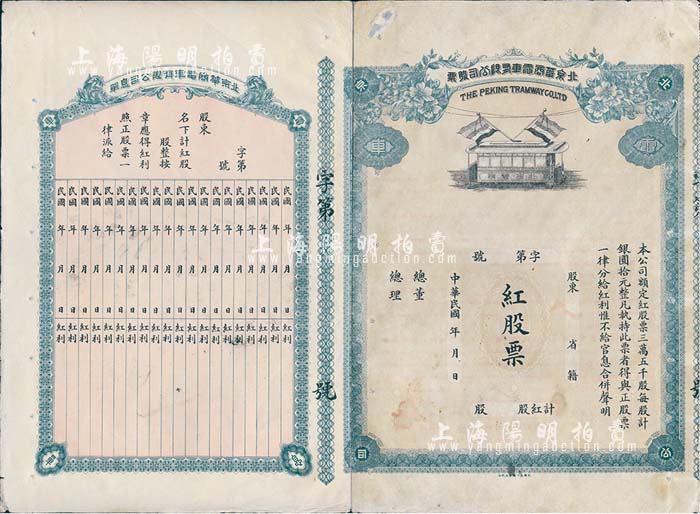 北京華商電車股份公司股票
THE PEKING TRAMWAY CO.LTD
北
京
電
車
公
司
本公司額定紅股票三萬五千股每股計
銀圓拾元整凡執持此票者得與正股票
一律分給紅利惟不給官息合併聲明
股東 省 籍
計紅股 股
字第 號
紅股票
中華民國 年 月 日
總董
總理
字第 號
北京華商電車股份公司息單
字第 號
股東
名下計紅股
股整按
章應得紅利
照正股票一
律派給
民國 年 月 日 紅利
民國 年 月 日 紅利
民國 年 月 日 紅利
民國 年 月 日 紅利
民國 年 月 日 紅利
民國 年 月 日 紅利
民國 年 月 日 紅利
民國 年 月 日 紅利
民國 年 月 日 紅利
民國 年 月 日 紅利
民國 年 月 日 紅利
民國 年 月 日 紅利
民國 年 月 日 紅利
民國 年 月 日 紅利
上海陽明拍賣
www.yangmingauction.com